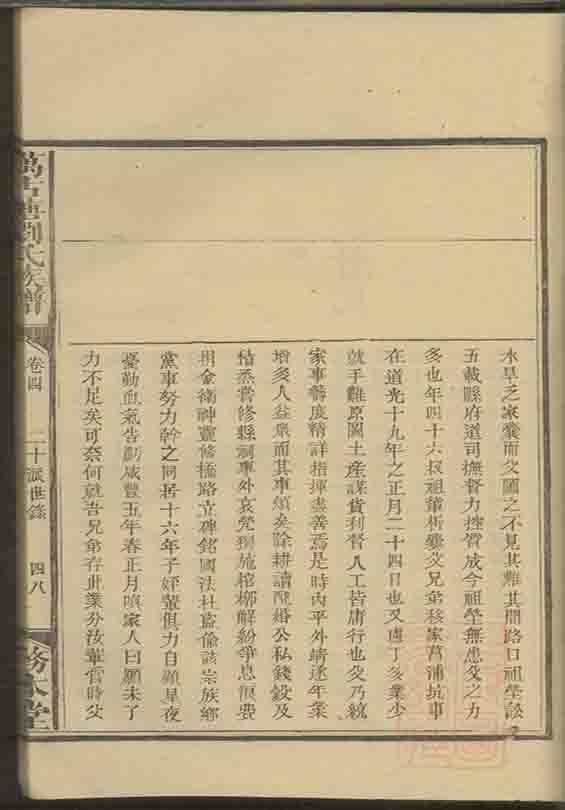 水旱之家業而父圖之不見其難其間路口祖塋訟
五載縣府道司撫督力控質成今祖塋無恙父之力
多也年四十六叔祖輩析爨父兄弟移家菖蒲坑事
在道光十九年之正月二十四日也又慮丁多業少
就手難原圖土産謀貨利督人工皆庸行也父乃統
家事嘗度精詳指揮盡善焉是時內平外靖逐年業
增多人益衆而其事煩矣除耕讀陞婚公私錢穀及
祜烝嘗修縣祠事外哀煢獨施棺槨解紛爭息狠斐
捐金衛神靈修橋路立碑銘國法社盜偷該宗族鄉
黨事努力幹之同居十六年子姪輩俱力自顧星夜
憂勤血氣告劉咸豐五年春正月喚家人曰願未了
力不足矣可奈何就吾兄弟存此業分汝輩管時父
萬古塘劉氏族譜
卷四
二十派世錄
四八
務本堂